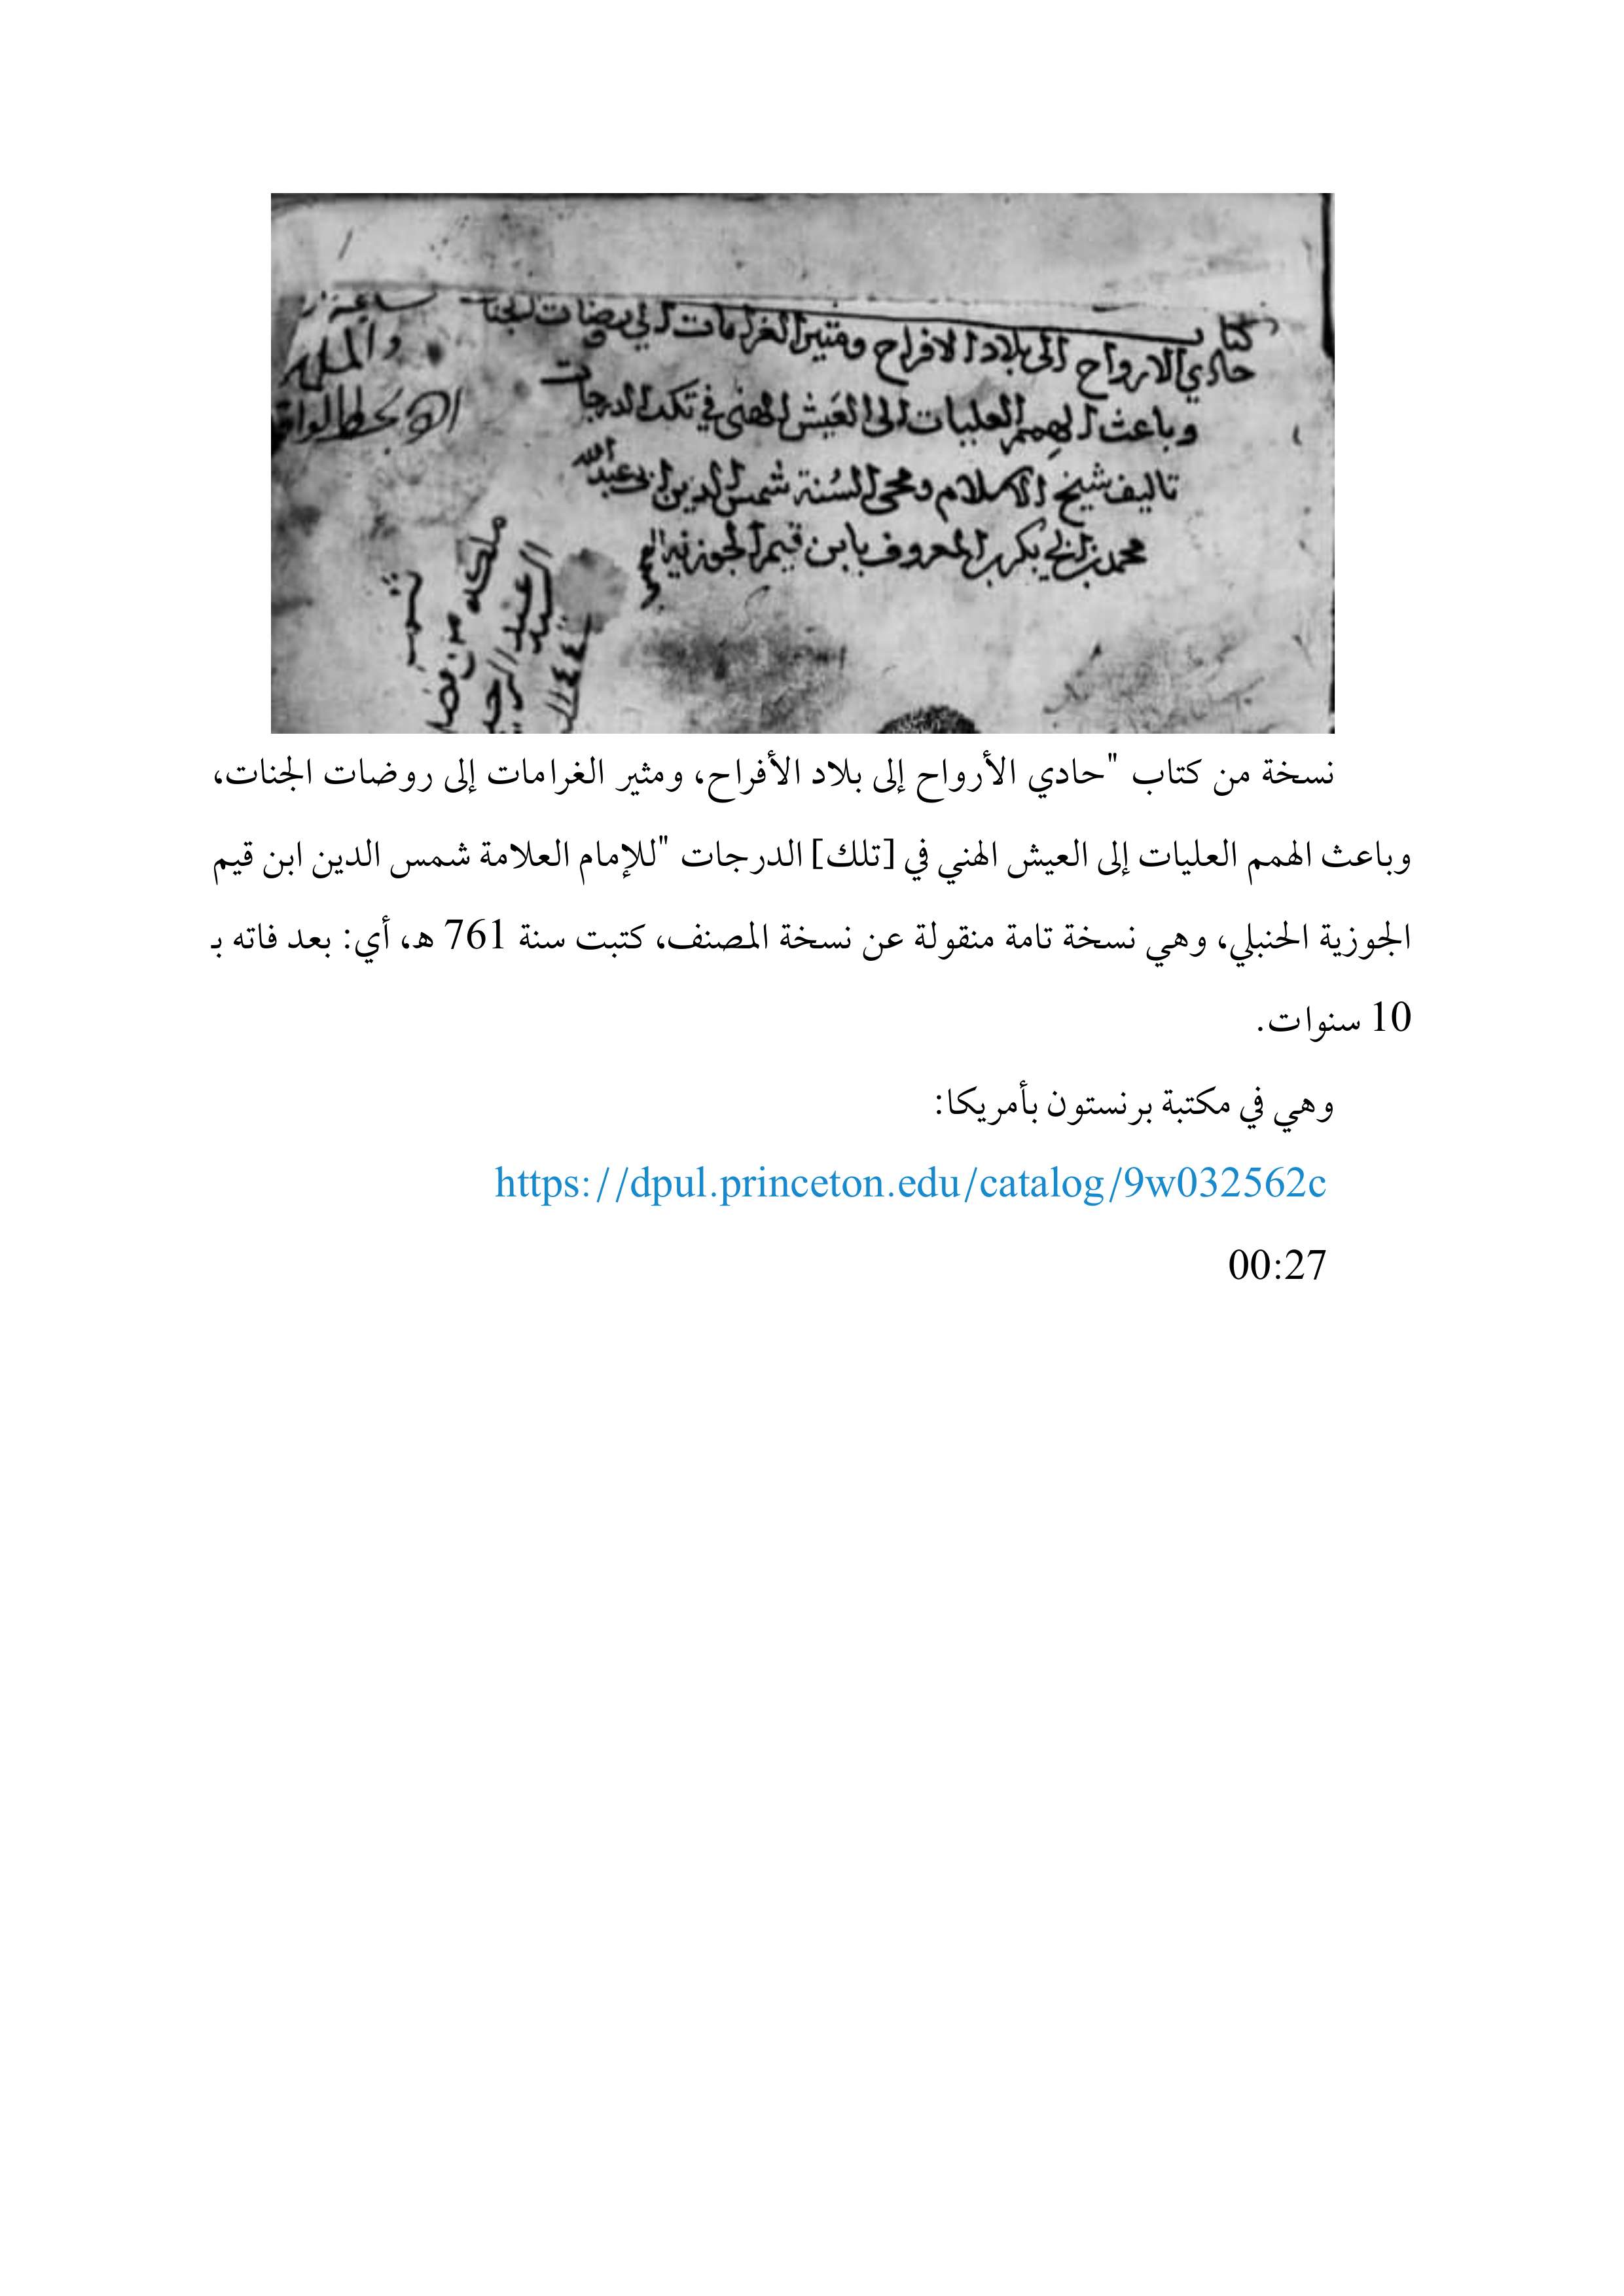 كتاب
حادي الارواح الى بلاد الافراح ومثير الغرامات الى روضات الجنات
وباعث الهمم العليات الى العيش الهني في تلك الدرجات
تاليف شيخ الاسلام ومحي السنة شمس الدين ابي عبد الله
محمد بن ابي بكر المعروف بابن قيم الجوزية
نسخة من كتاب "حادي الأرواح إلى بلاد الأفراح، ومثير الغرامات إلى روضات الجنات،
وباعث الهمم العليات إلى العيش الهني في [تلك] الدرجات "للإمام العلامة شمس الدين ابن قيم
الجوزية الحنبلي، وهي نسخة تامة منقولة عن نسخة المصنف، كتبت سنة 761 هـ، أي: بعد فاته بـ
10 سنوات.
وهي في مكتبة برنستون بأمريكا:
https://dpul.princeton.edu/catalog/9w032562c
00:27